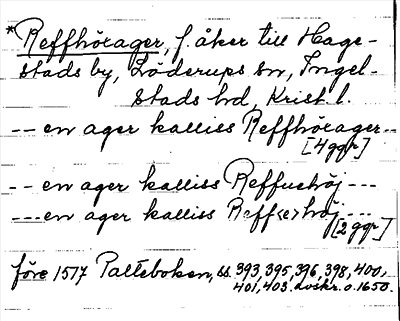 *Reffhörager, f. åker till Hage-
stads by, Löderups sn, Ingel-
stads hd, Krist. l.
-- en ager kalliss Reffhörager --
[4 ggr]
-- en ager kalliss Reffuehöj ---
--- en ager kalliss Reff<e>höj ---
[2 ggr]
före 1517 Palteboken, ss. 393, 395, 396, 398, 400,
401, 403. avskr. o. 1650.